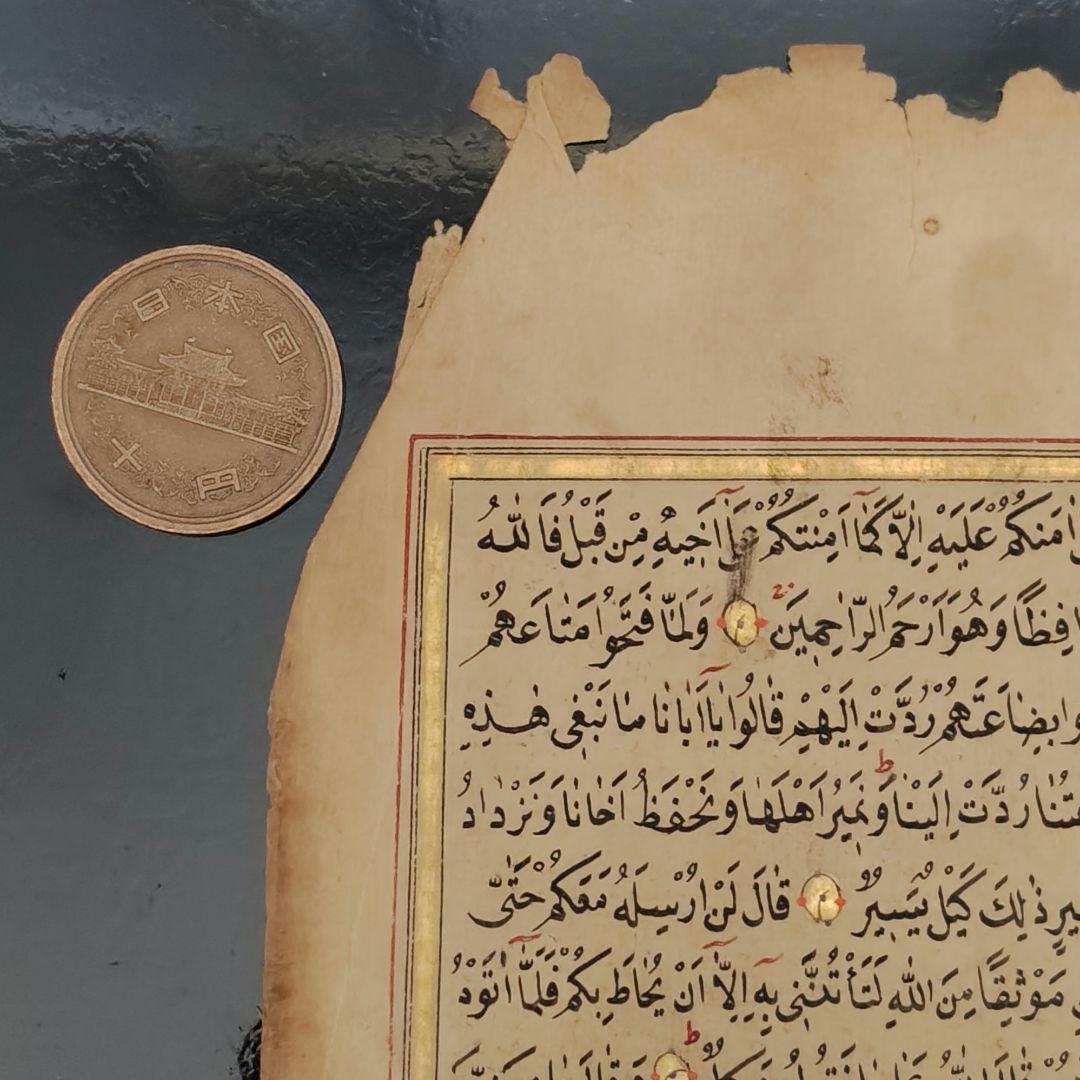 日本国
十円
اٰمَنُكُمْ عَلَيْهِ اِلَّا كَمَٓا اَمِنْتُكُمْ عَلٰٓى اَخِيهِ مِنْ قَبْلُ فَاللّٰهُ
وَهُوَ اَرْحَمُ الرَّاحِمِينَ وَلَمَّا فَتَحُوا مَتَاعَهُمْ
بِضَاعَتَهُمْ رُدَّتْ اِلَيْهِمْ قَالُوا يَٓا اَبَانَا مَا نَبْغِى هٰذِهِ
رُدَّتْ اِلَيْنَا ط وَنَمِيرُ اَهْلَنَا وَنَحْفَظُ اَخَانَا وَنَزْدَادُ
ذٰلِكَ كَيْلٌ يَسِيرٌ قَالَ لَنْ اُرْسِلَهُ مَعَكُمْ حَتّٰى
مَوْثِقًا مِنَ اللّٰهِ لَتَأْتُنَّنِى بِهِٓ اِلَّٓا اَنْ يُحَاطَ بِكُمْ فَلَمَّٓا اٰتَوْهُ